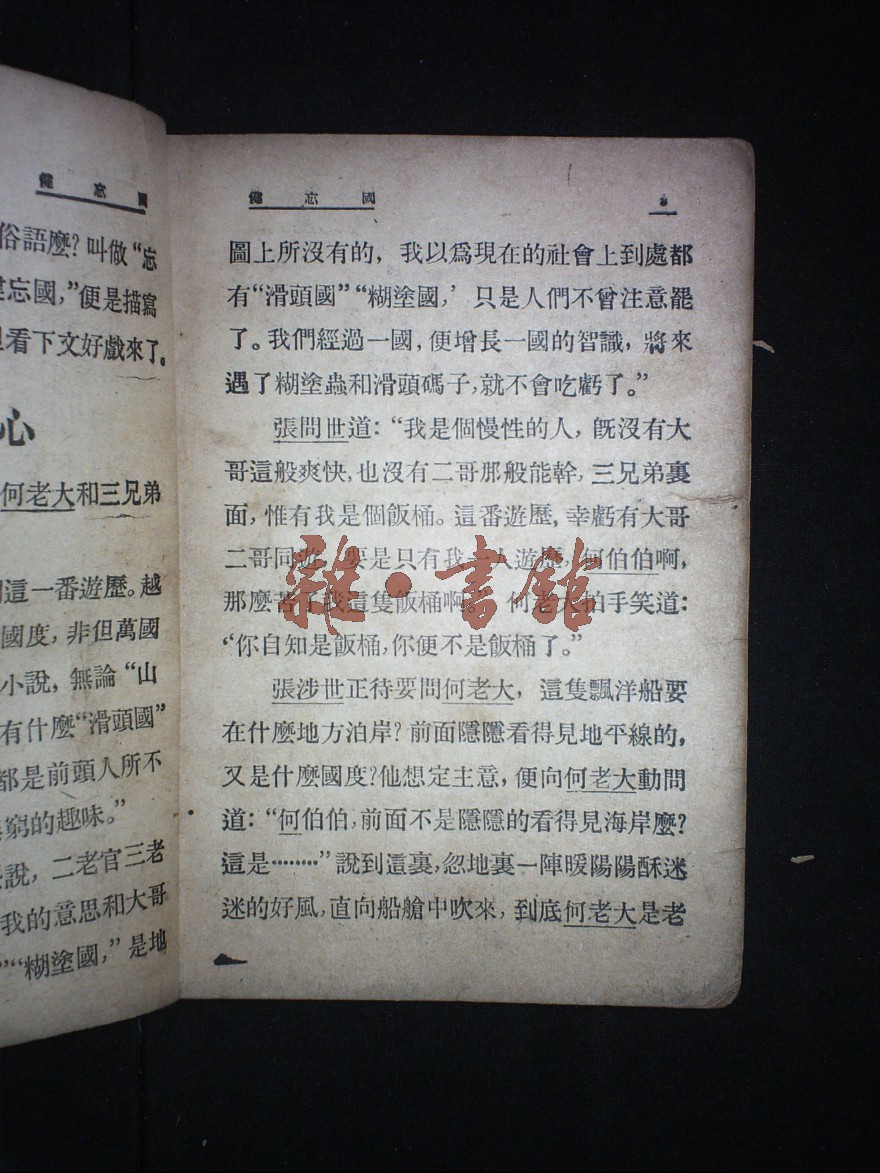 健忘國
俗語麼？叫做“忘
忘國，”便是描寫
看下文好戲來了。
心
何老大和三兄弟
這一番遊歷。越
國度，非但萬國
小說，無論“山
有什麼“滑頭國”
都是前頭人所不
窮的趣味。”
說，二老官三老
我的意思和大哥
”“糊塗國，”是地
健忘國
3
圖上所沒有的，我以爲現在的社會上到處都
有“滑頭國”“糊塗國，’只是人們不曾注意罷
了。我們經過一國，便增長一國的智識，將來
遇了糊塗蟲和滑頭碼子，就不會吃虧了。”
張問世道：“我是個慢性的人，旣沒有大
哥這般爽快，也沒有二哥那般能幹，三兄弟裏
面，惟有我是個飯桶。這番遊歷，幸虧有大哥
二哥同遊，要是只有我一人遊歷，何伯伯啊，
那麼苦了我這隻飯桶啊。”何老大拍手笑道：
“你自知是飯桶，你便不是飯桶了。”
張涉世正待要問何老大，這隻飄洋船要
在什麼地方泊岸？前面隱隱看得見地平線的，
又是什麼國度？他想定主意，便向何老大動問
道：“何伯伯，前面不是隱隱的看得見海岸麼？
這是………”說到這裏，忽地裏一陣暖陽陽酥迷
迷的好風，直向船艙中吹來，到底何老大是老
雜·書館